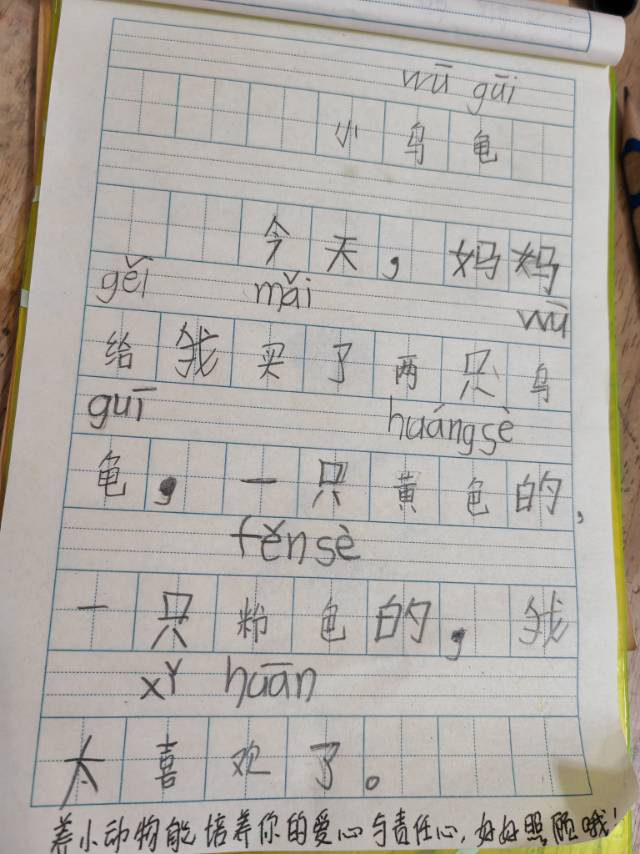 wū guī
小乌龟
今天，妈妈
gěi mǎi wū
给我买了两只乌
guī huángsè
龟，一只黄色的，
fěnsè
一只粉色的，我
xǐ huān
太喜欢了。
养小动物能培养你的爱心与责任心，好好照顾哦！